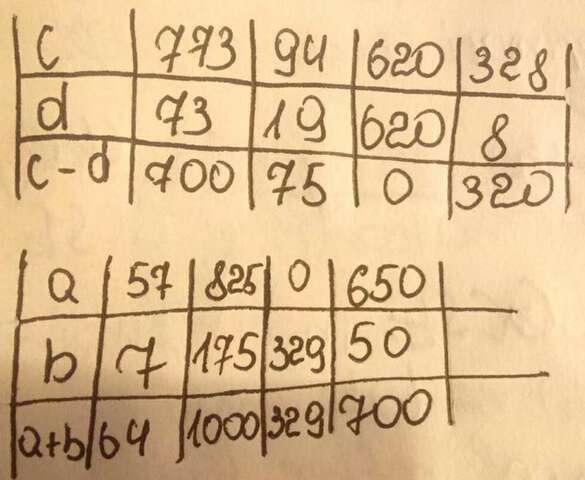 c 773 94 620 328
d 73 19 620 8
c-d 700 75 0 320
a 57 825 0 650
b 7 175 329 50
a+b 64 1000 329 700